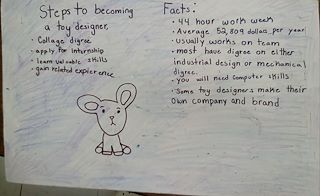 Steps to becoming
a toy designer.
• Collage digree
• apply for internship
• learn valuable skills
• gain related expierence
Facts:
• 44 hour work week
• Average 52,809 dollas per year
• usually works on team
• most have degree on either
industrial design or mechanical
digree.
• you will need computer skills
• Some toy designers make their
own company and brand